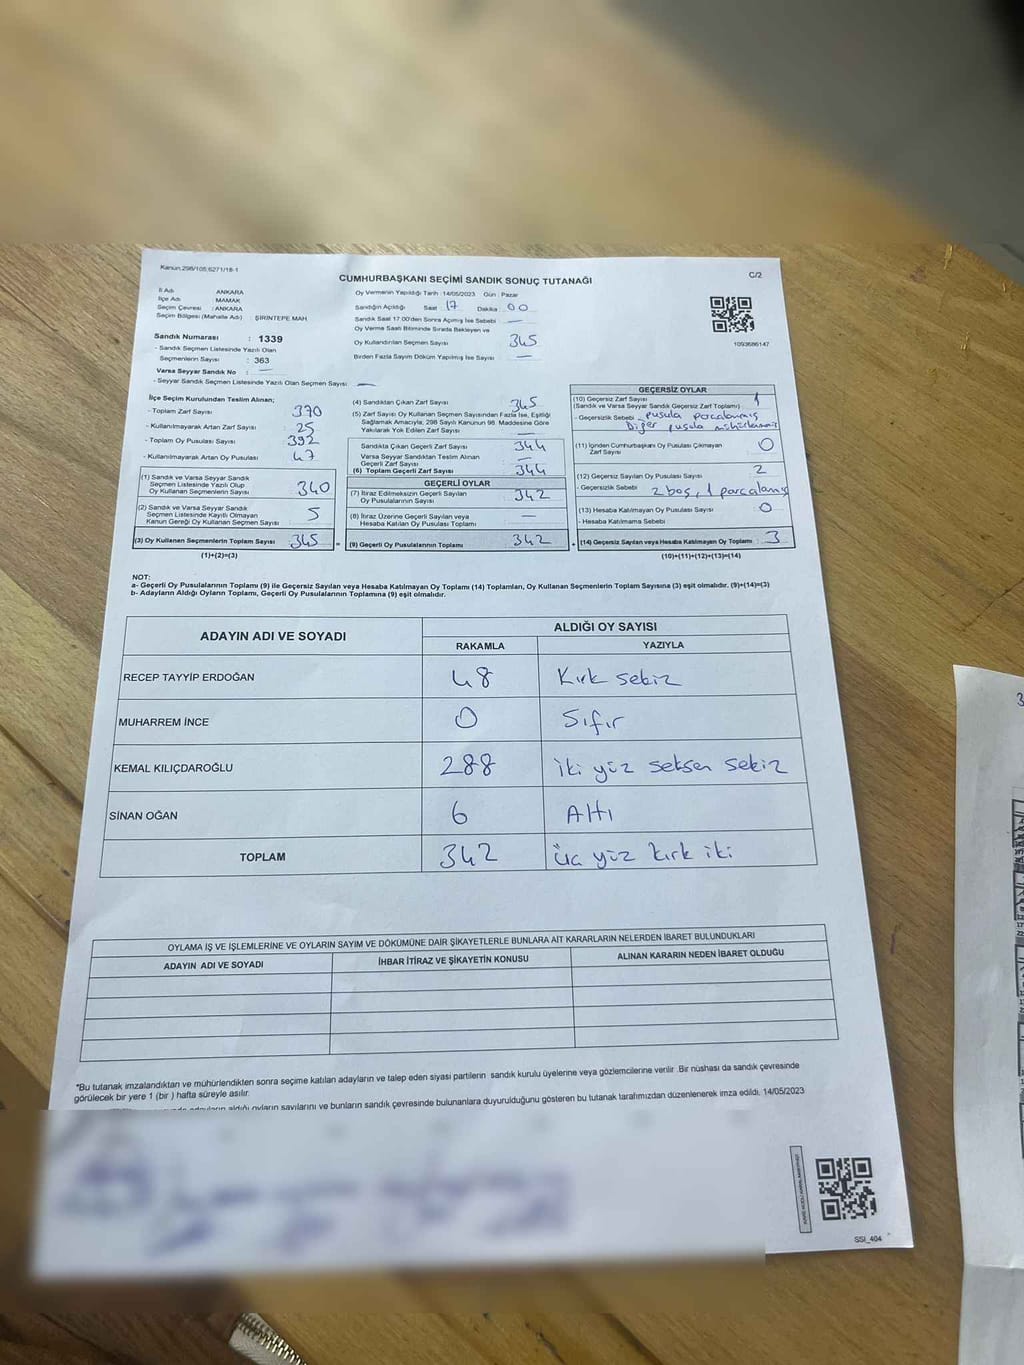 Kanun:298/105;6271/18-1
CUMHURBAŞKANI SEÇİMİ SANDIK SONUÇ TUTANAĞI
C/2
İl Adı ANKARA
İlçe Adı MAMAK
Seçim Çevresi : ANKARA
Seçim Bölgesi (Mahalle Adı) ŞİRİNTEPE MAH.
Sandık Numarası : 1339
- Sandık Seçmen Listesinde Yazılı Olan
Seçmenlerin Sayısı : 363
Varsa Seyyar Sandık No : —
- Seyyar Sandık Seçmen Listesinde Yazılı Olan Seçmen Sayısı : —
Oy Vermenin Yapıldığı Tarih : 14/05/2023 Gün : Pazar
Sandığın Açıldığı Saat : 17 Dakika : 00
Sandık Saat 17:00'den Sonra Açılmış İse Sebebi —
Oy Verme Saati Bitiminde Sırada Bekleyen ve
Oy Kullandırılan Seçmen Sayısı 345
Birden Fazla Sayım Döküm Yapılmış İse Sayısı —
1093686147
İlçe Seçim Kurulundan Teslim Alınan;
- Toplam Zarf Sayısı 370
- Kullanılmayarak Artan Zarf Sayısı 25
- Toplam Oy Pusulası Sayısı 392
- Kullanılmayarak Artan Oy Pusulası 47
(1) Sandık ve Varsa Seyyar Sandık
Seçmen Listesinde Yazılı Olup
Oy Kullanan Seçmenlerin Sayısı 340
(2) Sandık ve Varsa Seyyar Sandık
Seçmen Listesinde Kayıtlı Olmayan
Kanun Gereği Oy Kullanan Seçmen Sayısı 5
(3) Oy Kullanan Seçmenlerin Toplam Sayısı 345
(1)+(2)=(3)
=
(4) Sandıktan Çıkan Zarf Sayısı 345
(5) Zarf Sayısı Oy Kullanan Seçmen Sayısından Fazla İse, Eşitliği
Sağlamak Amacıyla, 298 Sayılı Kanunun 98. Maddesine Göre
Yakılarak Yok Edilen Zarf Sayısı —
Sandıkta Çıkan Geçerli Zarf Sayısı 344
Varsa Seyyar Sandıktan Teslim Alınan
Geçerli Zarf Sayısı —
(6) Toplam Geçerli Zarf Sayısı 344
GEÇERLİ OYLAR
(7) İtiraz Edilmeksizin Geçerli Sayılan
Oy Pusulalarının Sayısı 342
(8) İtiraz Üzerine Geçerli Sayılan veya
Hesaba Katılan Oy Pusulası Toplamı —
(9) Geçerli Oy Pusulalarının Toplamı 342
+
GEÇERSİZ OYLAR
(10) Geçersiz Zarf Sayısı 1
(Sandık ve Varsa Seyyar Sandık Geçersiz Zarf Toplamı)
- Geçersizlik Sebebi pusula parçalanmış
Diğer pusula mühürlenmiş
(11) İçinden Cumhurbaşkanı Oy Pusulası Çıkmayan
Zarf Sayısı 0
(12) Geçersiz Sayılan Oy Pusulası Sayısı 2
- Geçersizlik Sebebi 2 boş, 1 parçalanmış
(13) Hesaba Katılmayan Oy Pusulası Sayısı 0
- Hesaba Katılmama Sebebi
(14) Geçersiz Sayılan veya Hesaba Katılmayan Oy Toplamı : 3
(10)+(11)+(12)+(13)=(14)
NOT:
a- Geçerli Oy Pusulalarının Toplamı (9) ile Geçersiz Sayılan veya Hesaba Katılmayan Oy Toplamı (14) Toplamları, Oy Kullanan Seçmenlerin Toplam Sayısına (3) eşit olmalıdır. (9)+(14)=(3)
b- Adayların Aldığı Oyların Toplamı, Geçerli Oy Pusulalarının Toplamına (9) eşit olmalıdır.
ADAYIN ADI VE SOYADI
ALDIĞI OY SAYISI
RAKAMLA YAZIYLA
RECEP TAYYİP ERDOĞAN 48 Kırk sekiz
MUHARREM İNCE 0 Sıfır
KEMAL KILIÇDAROĞLU 288 iki yüz seksen sekiz
SİNAN OĞAN 6 Altı
TOPLAM 342 üç yüz kırk iki
OYLAMA İŞ VE İŞLEMLERİNE VE OYLARIN SAYIM VE DÖKÜMÜNE DAİR ŞİKAYETLERLE BUNLARA AİT KARARLARIN NELERDEN İBARET BULUNDUKLARI
ADAYIN ADI VE SOYADI İHBAR İTİRAZ VE ŞİKAYETİN KONUSU ALINAN KARARIN NEDEN İBARET OLDUĞU
*Bu tutanak imzalandıktan ve mühürlendikten sonra seçime katılan adayların ve talep eden siyasi partilerin sandık kurulu üyelerine veya gözlemcilerine verilir .Bir nüshası da sandık çevresinde
görülecek bir yere 1 (bir ) hafta süreyle asılır.
adayların aldığı oyların sayılarını ve bunların sandık çevresinde bulunanlara duyurulduğunu gösteren bu tutanak tarafımızdan düzenlenerek imza edildi. 14/05/2023
SSI_404